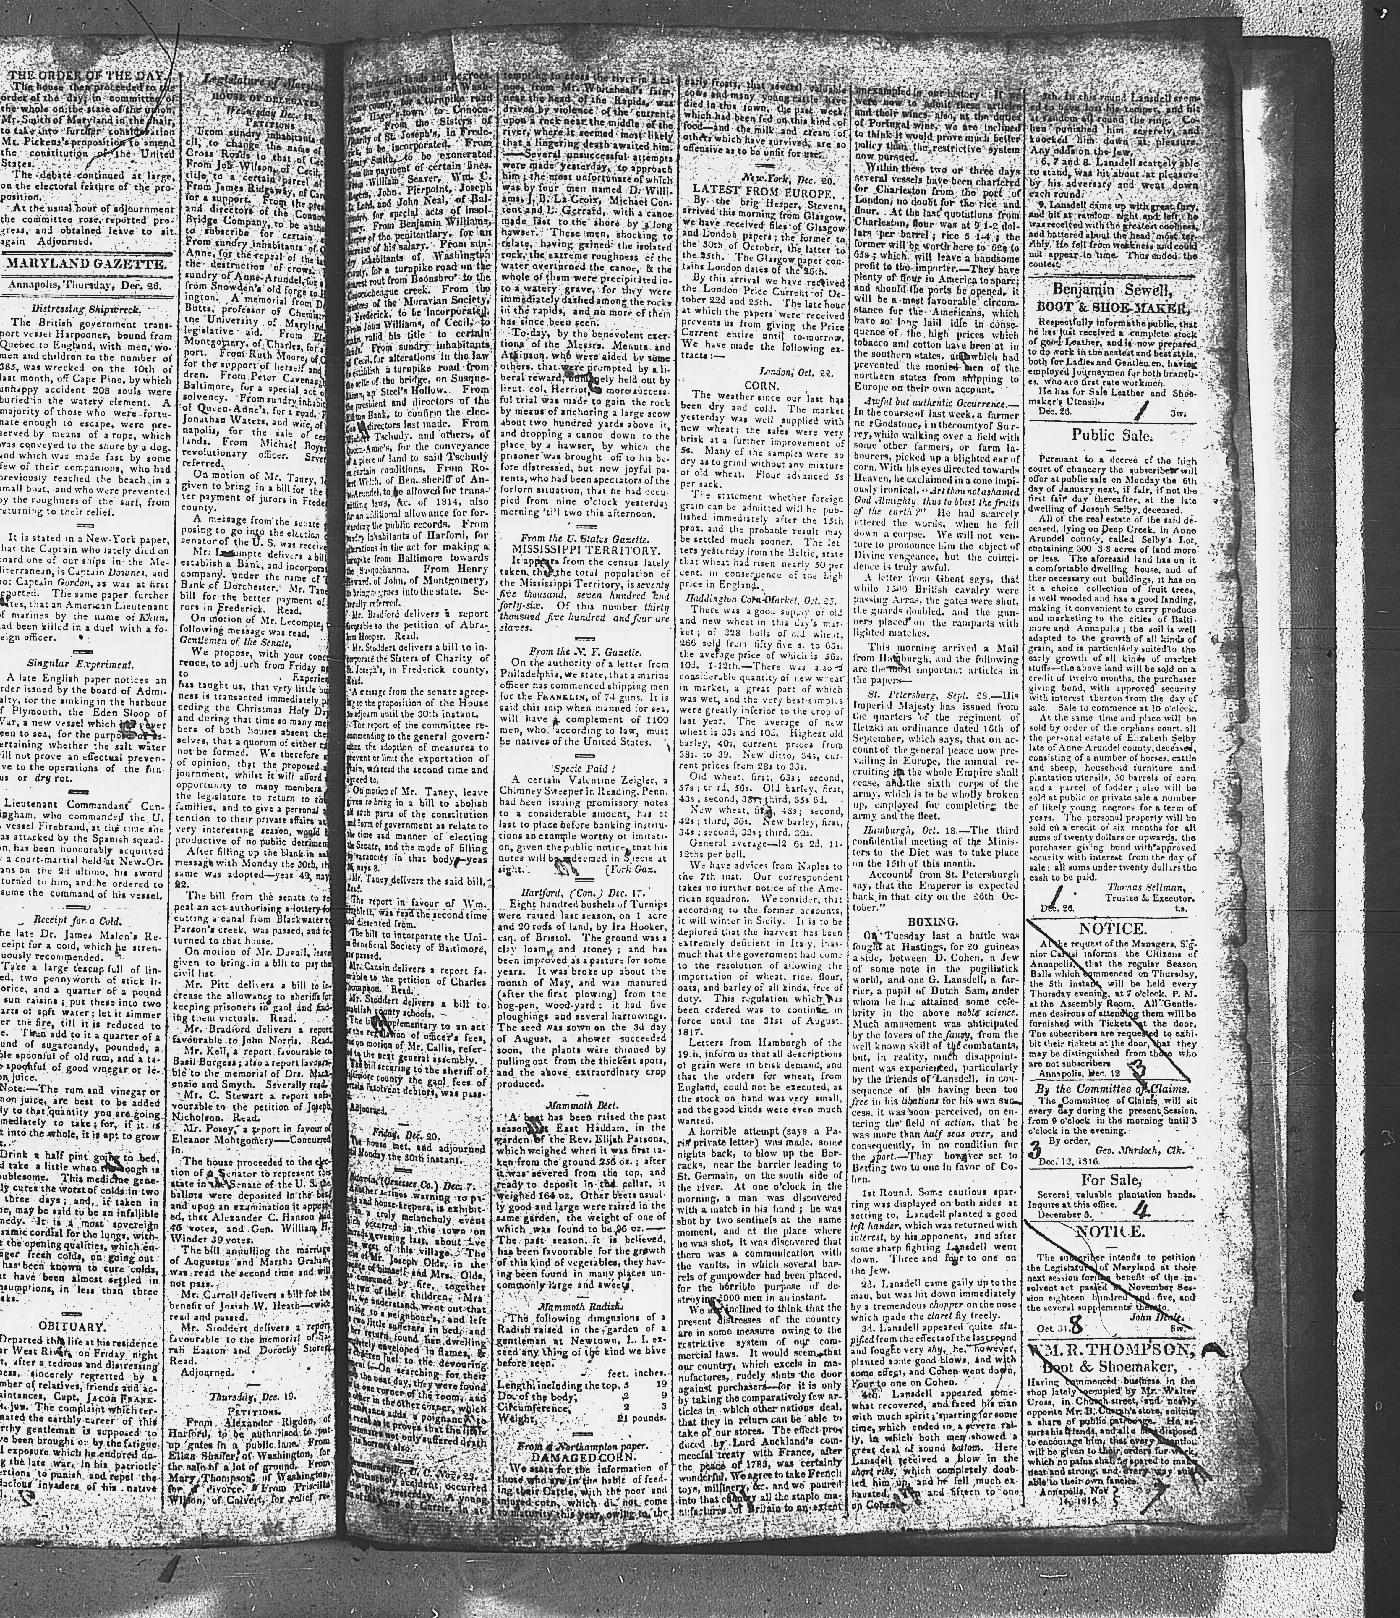 THE ORDER OF THE DAY.
The house then proceeded to the
order of the day, in committee of
the whole on the state of the union,
Mr. Smith of Maryland in the chair,
to take into further consideration
Mr. Pickens's proposition to amend
the constitution of the United
States.
The debate continued at large,
on the electoral feature of the pro-
position.
At the usual hour of adjournment
the committee rose, reported pro-
gress, and obtained leave to sit
again Adjourned.
MARYLAND GAZETTE.
Annapolis, Thursday, Dec. 26.
Distressing Shipwreck.
The British government trans-
port vessel Harpooner, bound from
Quebec to England, with men, wo-
men and children to the number of
385, was wrecked on the 10th of
last month, off Cape Pine, by which
unhappy accident 208 souls were
buried in the watery element. A
majority of those who were fortu-
nate enough to escape, were pre-
served by means of a rope, which
was conveyed to the shore by a dog,
and which was made fast by some
few of their companions, who had
previously reached the beach, in a
small boat, and who were prevented
by the roughness of the surf, from
returning to their relief.
It is stated in a New-York paper,
that the Captain who lately died on
board one of our ships in the Me-
diterranean, is Captain Downes, and
not Captain Gordon, as was at first
reported. The same paper further
states, that an American Lieutenant
of marines by the name of
had been killed in a duel with a fo-
reign officer.
Singular Experiment.
A late English paper notices an
order issued by the board of Admi-
ralty, for the sinking in the harbour
of Plymouth, the Eden Sloop of
War, a new vessel which
been to sea, for the purpose of as-
certaining whether the salt water
will not prove an effectual preven-
tive to the operations of the fun-
gus or dry rot.
Lieutenant Commandant Cun-
ningham, who commanded the U.
S. vessel Firebrand, at the time she
was attacked by the Spanish squad-
ron, has been honourably acquitted
by a court-martial held at New-Or-
leans on the 2d ultimo, his sword
returned to him, and he ordered to
resume the command of his vessel.
Receipt for a Cold.
The late Dr. James Malen's Re-
ceipt for a cold, which he stren-
uously recommended.
Take a large teacup full of lin-
seed, two pennyworth of stick li-
quorice, and a quarter of a pound
of sun raisins; put these into two
quarts of soft water; let it simmer
over the fire, till it is reduced to
one. Then add to it a quarter of a
pound of sugarcandy, pounded, a
table spoonful of old rum, and a ta-
ble spoonful of good vinegar or le-
mon juice.
Note.—The rum and vinegar or
lemon juice, are best to be added
only to that quantity you are going
immediately to take; for, if it is
put into the whole, it is apt to grow
flat.
Drink a half pint going to bed,
and take a little when the cough is
troublesome. This medicine gene-
rally cures the worst of colds in two
or three days; and, if taken in
time, may be said to be an infallible
remedy. It is a most sovereign
balsamic cordial for the lungs, with-
out the opening qualities, which en-
danger fresh colds, on going out.
It has been known to cure colds,
that have been almost settled in
consumptions, in less than three
weeks.
OBITUARY.
Departed this life at his residence
near West River, on Friday night
last, after a tedious and distressing
illness, sincerely regretted by a
number of relatives, friends and ac-
quaintances, Capt. JACOB FRANK-
LIN, jun. The complaint which ter-
minated the earthly career of this
worthy gentleman is supposed to
have been brought on by the fatigue
and exposure which he endured du-
ring the late war, in his patriotic
exertions to punish and repel the
audacious invaders of his native
Legislature of Maryland
HOUSE OF DELEGATES
Wednesday Dec. 18.
PETITIONS
From sundry inhabitants of Ce-
cil, to change the name of
Cross Roads to that of
From Job Wilson, of Cecil,
title to a certain parcel of
From James Ridgaway, of
for a support. From the
and directors of the
Bridge Company, to be
to subscribe for certain
From sundry inhabitants of
Anne, for the repeal of the
the destruction of crows
sundry of Anne-Arundel, for
from Snowden's old forge to
ington. A memorial from
Butts, professor of Chemistry
the University of Maryland,
legislative aid. From
Montgomery, of Charles, for
port. From Ruth Moore, of
for the support of herself and
dren. From Peter Cavenaugh
Baltimore, for a special act of
solvency. From sundry inhabitants
of Queen-Anne's, for a road.
Jonathan Waters, and wife, of
napolis, for the sale of certain
lands. From Michael Boyer
revolutionary officer. Severally
referred.
On motion of Mr. Taney,
given to bring in a bill for the
ter payment of jurors in Frederick
county.
A message from the senate
posing to go into the election
senator of the U. S. was received
Mr. Lecompte delivers a bill
establish a Bank, and incorporate
company, under the name of
Bank of Dorchester. Mr. Taney
bill for the better payment of
rors in Frederick. Read.
On motion of Mr. Lecompte,
following message was read.
Gentlemen of the Senate,
We propose, with your concur-
rence, to adjourn from Friday next
to Experience
has taught us, that very little busi-
ness is transacted immediately pre-
ceding the Christmas Holy Days,
and during that time so many mem-
bers of both houses absent them-
selves, that a quorum of either can
not be formed. We therefore are
of opinion, that the proposed ad-
journment, whilst it will afford an
opportunity to many members of
the legislature to return to their
families, and to give a personal at-
tention to their private affairs at a
very interesting season, would be
productive of no public detriment.
After filling up the blank in said
message with Monday the 30th, the
same was adopted—yeas 49, nays
22.
The bill from the senate to re-
peal an act authorising a lottery for
cutting a canal from Blackwater to
Parson's creek, was passed, and re-
turned to that house.
On motion of Mr. Duvall, leave
given to bring in a bill to pay the
civil list.
Mr. Pitt delivers a bill to in-
crease the allowance to sheriffs for
keeping prisoners in gaol and find-
ing them victuals. Read.
Mr. Bradford delivers a report
favourable to John Norris. Read.
Mr. Kell, a report favourable to
Basil Burgess; also a report favoura-
ble to the memorial of Drs. Mack-
enzie and Smyth. Severally read.
Mr. C. Stewart a report unfa-
vourable to the petition of Joseph
Nicholson. Read.
Mr. Posey, a report in favour of
Eleanor Montgomery—Concurred
in.
The house proceeded to the elec-
tion of a Senator to represent this
state in the Senate of the U. S. the
ballots were deposited in the box,
and upon an examination it appear-
ed, that Alexander C. Hanson had
46 votes, and Gen. William H.
Winder 39 votes.
The bill annulling the marriage
of Augustus and Martha Graham,
was read the second time and will
not pass.
Mr. Carroll delivers a bill for the
benefit of Josiah W. Heath—twice
read and passed.
Mr. Stoddert delivers a report
favourable to the memorial of Sa-
rah Easton and Dorothy Storer.
Read.
Adjourned.
Thursday, Dec. 19.
PETITIONS.
From Alexander Rigdon, of
Harford, to be authorised to put
up gates in a public lane. From
Eliza Shafer, of Washington, for
the sale of a lot of ground. From
Mary Thompson, of Washington,
for a divorce. From Priscilla
Wilson, of Calvert, for relief re-
lative to certain lands and negroes.
From sundry inhabitants of Wash-
ington county, for a turnpike road
from Hager's-town to Conoco-
cheague. From the Sisters of
Charity of St. Joseph's, in Frede-
rick, to be incorporated. From
Henry Smith, to be exonerated
from the payment of certain fines.
From William Seaver, Wm. C.
Rogers, John Pierpoint, Joseph
Le Lord, and John Neal, of Bal-
timore, for special acts of insol-
vency. From Benjamin Williams,
keeper of the penitentiary, for an
increase of his salary. From sun-
dry inhabitants of Washington
county, for a turnpike road on the
nearest rout from Boonsbro' to the
Conococheague creek. From the
elders of the Moravian Society,
in Frederick, to be incorporated.
From John Williams, of Cecil, to
make valid his title to certain
land. From sundry inhabitants
of Cecil, for alterations in the law
to establish a turnpike road from
the scite of the bridge, on Susque-
hanna, at Steel's Hollow. From
the president and directors of the
Elkton Bank, to confirm the elec-
tion of directors last made. From
Michael Tschudy, and others, of
Queen-Anne's, for the conveyance
of a piece of land to said Tschudy
on certain conditions. From Ro-
bert Welch, of Ben. sheriff of An-
ne-Arundel, to be allowed for trans-
mitting laws, &c. of 1814, also
for an additional allowance for for-
warding the public records. From
sundry inhabitants of Harford, for
alterations in the act for making a
road from Baltimore towards
the Susquehanna. From Henry
Howard, of John, of Montgomery,
to bring negroes into the state. Se-
verally referred.
Mr. Bradford delivers a report
favourable to the petition of Abra-
ham Hooper. Read.
Mr. Stoddert delivers a bill to in-
corporate the Sisters of Charity of
St. Joseph's, in Frederick county.
Read.
A message from the senate agree-
ing to the proposition of the House
to adjourn until the 30th instant.
The report of the committee re-
commending to the general govern-
ment the adoption of measures to
prevent or limit the exportation of
grain, was read the second time and
agreed to.
On motion of Mr. Taney, leave
given to bring in a bill to abolish
all such parts of the constitution
and form of government as relate to
the time and manner of electing
the Senate, and the mode of filling
up vacancies in that body—yeas
Mr. Taney delivers the said bill.
Read.
The report in favour of Wm.
was read the second time
and dissented from.
The bill to incorporate the Uni-
ted Beneficial Society of Baltimore,
was passed.
Mr. Cassin delivers a report fa-
vourable to the petition of Charles
Thompson. Read.
Mr. Stoddert delivers a bill to
establish county schools.
The supplementary to an act
of officer's fees,
on motion of Mr. Callis, refer-
red to the next general assembly.
The bill securing to the sheriff of
Baltimore county the gaol fees of
insolvent debtors, was pass-
ed.
Adjourned.
Friday, Dec. 20.
The house met, and adjourned
until Monday the 30th instant.
Batavia, (Genessee Co.) Dec. 7.
Another serious warning to pa-
rents and house-keepers, is exhibit-
ed in a truly melancholy event
which occurred in this town on
evening last, about five
miles west of this village. The
house of Mr. Joseph Olds, in the
absence of himself and Mrs. Olds,
was consumed by fire, together
with two of their children. Mrs.
Olds, we understand, went out that
evening to a neighbour's, and left
the two sufferers in bed; and
on her return found her dwelling
completely enveloped in flames, &
their fuel to the devouring
element.—On searching for their
bodies the next day, they were found
one in one corner of the room, and
the other in the other corner, which
circumstance adds a poignancy to
grief, as it proves that the little
innocents not only suffered death
but its horrors also.
U. C. Nov. 22.
A melancholy accident occurred
here yesterday. A young
in at-
tempting to cross the river in a ca-
noe, from Mr. Whitehead's farm,
near the head of the Rapids, was
driven by violence of the current,
upon a rock near the middle of the
river, where it seemed most likely
that a lingering death awaited him.
—Several unsuccessful attempts
were made yesterday, to approach
him; the most unfortunate of which
was by four men named D. Willi-
ams, J. B. La Croix, Michael Con-
tent and L. Gerrard, with a canoe
made fast to the shore by a long
hawser. These men, shocking to
relate, having gained the isolated
rock, the extreme roughness of the
water overturned the canoe, & the
whole of them were precipitated in-
to a watery grave, for they were
immediately dashed among the rocks
in the rapids, and no more of them
has since been seen.
To-day, by the benevolent exer-
tions of the Messrs. Menuts, and
Atkinson, who were aided by some
others, that were prompted by a li-
beral reward, humanely held out by
lieut. col. Herriot, a more success-
ful trial was made to gain the rock
by means of anchoring a large scow
about two hundred yards above it,
and dropping a canoe down to the
place by a hawser, by which the
prisoner was brought off to his be-
fore distressed, but now joyful pa-
rents, who had been spectators of the
forlorn situation, that he had occu-
pied from nine o'clock yesterday
morning 'till two this afternoon.
From the U. States Gazette.
MISSISSIPPI TERRITORY.
It appears from the census lately
taken, that the total population of
the Mississippi Territory, is seventy
five thousand, seven hundred and
forty-six. Of this number thirty
thousand five hundred and four are
slaves.
From the N. Y. Gazette.
On the authority of a letter from
Philadelphia, we state, that a marine
officer has commenced shipping men
for the FRANKLIN, of 74 guns. It is
said this ship when manned for sea,
will have a complement of 1100
men, who, according to law, must
be natives of the United States.
Specie Paid!
A certain Valentine Zeigler, a
Chimney Sweeper in Reading, Penn.
had been issuing promissory notes
to a considerable amount, has at
last to place before banking institu-
tions an example worthy of imitati-
on, given the public notice, that his
notes will be redeemed in Specie at
sight. [York Gaz.
Hartford, (Con.) Dec. 17.
Eight hundred bushels of Turnips
were raised last season, on 1 acre
and 20 rods of land, by Ira Hooker,
esq. of Bristol. The ground was a
clay loam, and stoney; and has
been improved as a pasture for some
years. It was broke up about the
month of May, and was manured
(after the first plowing) from the
hog-pen, wood-yard; it had five
ploughings and several harrowings.
The seed was sown on the 3d day
of August, a shower succeeded
soon, the plants were thinned by
pulling out from the thickest spots,
and the above extraordinary crop
produced.
Mammoth Beet.
A beet has been raised the past
season at East Haddam, in the
garden of the Rev. Elijah Parsons,
which weighed when it was first ta-
ken from the ground 256 oz.; after
it was severed from the top, and
ready to deposit in the cellar, it
weighed 164 oz. Other beets usual-
ly good and large were raised in the
same garden, the weight of one of
which was found to be 96 oz.—
The past season, it is believed,
has been favourable for the growth
of this kind of vegetables, they hav-
ing been found in many places un-
commonly large and sweet.
Mammoth Radish.
The following dimensions of a
Radish raised in the garden of a
gentleman at Newtown, L. I. ex-
ceed any thing of the kind we have
before seen.
feet. inches.
Length, including the top, 3 19
Do. of the body, 2 9
Circumference, 2 3
Weight, 21 pounds.
From a Northampton paper.
DAMAGED CORN.
We state for the information of
those who are in the habit of feed-
ing their Cattle, with the poor and
injured corn, which did not come
to maturity this year, owing to the
early frosts, that several valuable
cows and many young cattle have
died in this town, the past week,
which had been fed on this kind of
food—and the milk and cream of
others which have survived, are so
offensive as to be unfit for use.
New-York, Dec. 20.
LATEST FROM EUROPE.
By the brig Hesper, Stevens,
arrived this morning from Glasgow,
we have received files of Glasgow
and London papers; the former to
the 30th of October, the latter to
the 25th. The Glasgow paper con-
tains London dates of the 26th.
By this arrival we have received
the London Price Current of Oc-
tober 22d and 25th. The late hour
at which the papers were received
prevents us from giving the Price
Current entire until to-morrow.
We have made the following ex-
tracts:—
London, Oct. 22.
CORN.
The weather since our last has
been dry and cold. The market
yesterday was well supplied with
new wheat; the sales were very
brisk at a further improvement of
5s. Many of the samples were so
dry as to grind without any mixture
of old wheat. Flour advanced 5s
per sack.
The statement whether foreign
grain can be admitted will be pub-
lished immediately after the 15th
prox. and the probable result may
be settled much sooner. The let-
ters yesterday from the Baltic, state
that wheat had risen nearly 50 per
cent. in consequence of the high
price in England.
Haddington Corn-Market, Oct. 25.
There was a good supply of old
and new wheat in this day's mar-
ket; of 328 bolls of old wheat,
266 sold from fifty five s. to 63s.
the average price of which is 56s.
10d. 1-12th.—There was also a
considerable quantity of new wheat
in market, a great part of which
was wet, and the very best samples
were greatly inferior to the crop of
last year. The average of new
wheat is 33s and 10d. Highest old
barley, 40s, current prices from
38s. to 39. New ditto, 34s, cur-
rent prices from 28s to 33s.
Old wheat, first, 63s; second,
57s; third, 50s. Old barley, first,
43s, second, 38s; third, 35s 6d.
New wheat, first, 48s; second,
42s; third, 36s. New barley, first,
34s; second, 32s; third, 30s.
General average—l2 6s 2d. 11-
12ths per boll.
We have advices from Naples to
the 7th inst. Our correspondent
takes no further notice of the Ame-
rican squadron. We consider, that
according to the former accounts,
it will winter in Sicily. It is to be
deplored that the harvest has been
extremely deficient in Italy, inas-
much that the government had come
to the resolution of allowing the
importation of wheat, rice, flour,
oats, and barley of all kinds, free of
duty. This regulation which has
been ordered was to continue in
force until the 31st of August,
1817.
Letters from Hamburgh of the
19th, inform us that all descriptions
of grain were in brisk demand, and
that the orders for wheat, from
England, could not be executed, as
the stock on hand was very small,
and the good kinds were even much
wanted.
A horrible attempt (says a Pa-
ris private letter) was made, some
nights back, to blow up the Bar-
racks, near the barrier leading to
St. Germain, on the south side of
the river. At one o'clock in the
morning, a man was discovered
with a match in his hand; he was
shot by two sentinels at the same
moment, and at the place where
he was shot, it was discovered that
there was a communication with
the vaults, in which several bar-
rels of gunpowder had been placed,
for the horrible purpose of de-
stroying 1000 men in an instant.
We are inclined to think that the
present distresses of the country
are in some measure owing to the
restrictive system of our com-
mercial laws. It would seem that
our country, which excels in ma-
nufactures, rudely shuts the door
against purchasers—for it is only
by taking the comparatively few ar-
ticles in which other nations deal,
that they in return can be able to
take of our stores. The effect pro-
duced by Lord Auckland's com-
mercial treaty with France, after
the peace of 1783, was certainly
wonderful. We agree to take French
toys, millinery, &c. and we poured
into that country all the staple ma-
nufactures of Britain to an extent
unexampled in our history. If we
were now to admit these articles
and their wines also, at the duties
of Portugal wine, we are inclined
to think it would prove much better
policy than the restrictive system
now pursued.
Within these two or three days
several vessels have been chartered
for Charleston from the port of
London, no doubt for the rice and
flour. At the last quotations from
Charleston, flour was at 9 1-2 dol-
lars per barrel; rice 5 1-4; the
former will be worth here to 60s to
65s; which will leave a handsome
profit to the importer.—They have
plenty of flour in America to spare;
and should the ports be opened, it
will be a most favourable circum-
stance for the Americans, which
have so long laid idle in conse-
quence of the high prices which
tobacco and cotton have been at in
the southern states, and which had
prevented the monied men of the
northern states from shipping to
Europe on their own account.
Awful but authentic Occurrence.—
In the course of last week, a farmer
near Godstone, in the county of Sur-
rey, while walking over a field with
some other farmers, or farm la-
bourers, picked up a blighted ear of
corn. With his eyes directed towards
Heaven, he exclaimed in a tone impi-
ously ironical, "Art thou not ashamed
God Almighty, thus to blast the fruits
of the earth?" He had scarcely
uttered the words, when he fell
down a corpse. We will not ven-
ture to pronounce him the object of
Divine vengeance, but the coinci-
dence is truly awful.
A letter from Ghent says, that
while 1500 British cavalry were
passing Arras, the gates were shut,
the guards doubled, and the gun-
ners placed on the ramparts with
lighted matches.
This morning arrived a Mail
from Hamburgh, and the following
are the most important articles in
the papers—
St. Petersburg, Sept. 28.—His
Imperial Majesty has issued from
the quarters of the regiment of
Iletzki an ordinance dated 16th of
September, which says, that on ac-
count of the general peace now pre-
vailing in Europe, the annual re-
cruiting in the whole Empire shall
cease, and the sixth corps of the
army, which is to be wholly broken
up, employed for completing the
army and the fleet.
Hamburg, Oct. 18.—The third
confidential meeting of the Minis-
ters to the Diet was to take place
on the 15th of this month.
Accounts from St. Petersburgh
say, that the Emperor is expected
back in that city on the 26th Oc-
tober."
BOXING.
On Tuesday last a battle was
fought at Hastings, for 20 guineas
a side, between D. Cohen, a Jew
of some note in the pugilistick
world, and one G. Lansdell, a far-
rier, a pupil of Dutch Sam, under
whom he has attained some cele-
brity in the above noble science.
Much amusement was anticipated
by the lovers of the fancy, from the
well known skill of the combatants,
but, in reality, much disappoint-
ment was experienced, particularly
by the friends of Lansdell, in con-
sequence of his having been too
free in his libations for his own suc-
cess. it was soon perceived, on en-
tering the field of action, that he
was more than half seas over, and
consequently, in no condition for
the sport.—They however set to
Betting two to one in favor of Co-
hen.
1st Round. Some cautious spar-
ring was displayed on both sides at
setting to, Lansdell planted a good
left hander, which was returned with
interest, by his opponent, and after
some sharp fighting Lansdell went
down. Three and four to one on
the Jew.
2d. Lansdell came gaily up to the
man, but was hit down immediately
by a tremendous chopper on the nose
which made the claret fly freely.
3d. Lansdell appeared quite stu-
pified from the effects of the last round
and fought very shy, he, however,
planted some good blows, and with
some effect, and Cohen went down.
Four to one on Cohen.
4th. Lansdell appeared some-
what recovered, and faced his man
with much spirit; sparring for some
time, which ended in a severe ral-
ly, in which both men showed a
great deal of sound bottom. Here
Lansdell received a blow in the
short ribs, which completely doub-
led him up, and he fell much ex-
hausted. Ten and fifteen to one
on Cohen.
5th. In this round Lansdell seem-
ed to have lost his temper, and hit
at random all round the ring. Co-
hen punished him severely, and
knocked him down at pleasure.
Any odds on the Jew.
6, 7 and 8. Lansdell scarcely able
to stand, was hit about at pleasure
by his adversary and went down
each round.
9. Lansdell came up with great fury,
and hit at random right and left, he
was received with the greatest coolness,
and battered about the head most ter-
ribly. He fell from weakness, and could
not appear in time. Thus ended the
contest.
Benjamin Sewell,
BOOT & SHOE-MAKER,
Respectfully informs the public, that
he has just received a complete stock
of good Leather, and is now prepared
to do work in the neatest and best style,
both for Ladies and Gentlemen, having
employed Journeymen for both branch-
es, who are first rate workmen.
He has for Sale Leather and Shoe-
maker's Utensils.
Dec. 26. 1 3w.
Public Sale.
Pursuant to a decree of the high
court of chancery the subscriber will
offer at public sale on Monday the 6th
day of January next, if fair, if not the
first fair day thereafter, at the late
dwelling of Joseph Selby, deceased.
All of the real estate of the said de-
ceased, lying on Deep Creek, in Anne
Arundel county, called Selby's Lot,
containing 300 3-8 acres of land more
or less. The aforesaid land has on it
a comfortable dwelling house, and o-
ther necessary out buildings, it has on
it a choice collection of fruit trees,
is well wooded and has a good landing,
making it convenient to carry produce
and marketing to the cities of Balti-
more and Annapolis; the soil is well
adapted to the growth of all kinds of
grain, and is particularly suited to the
early growth of all kinds of market
stuffs—the above land will be sold on a
credit of twelve months, the purchaser
giving bond, with approved security
with interest thereon from the day of
sale. Sale to commence at 10 o'clock.
At the same time and place will be
sold by order of the orphans court, all
the personal estate of Elizabeth Selby
late of Anne Arundel county, deceased,
consisting of a number of horses, cattle
and sheep, household furniture and
plantation utensils, 50 barrels of corn
and a parcel of fodder; also will be
sold at public or private sale a number
of likely young negroes for a term of
years. The personal property will be
sold on a credit of six months for all
sums of twenty dollars or upwards, the
purchaser giving bond with approved
security with interest from the day of
sale; all sums under twenty dollars the
cash to be paid.
Thomas Sellman,
Trustee & Executor.
Dec. 26. 1 t.s.
NOTICE.
At the request of the Managers, Sig-
nior Carusi informs the Citizens of
Annapolis, that the regular Season
Balls which commenced on Thursday,
the 5th instant, will be held every
Thursday evening, at 7 o'clock, P. M.
at the Assembly Room. All Gentle-
men desirous of attending them will be
furnished with Tickets at the door.
The subscribers are requested to exhi-
bit their tickets at the door, that they
may be distinguished from those who
are not subscribers
Annapolis, Dec. 12 3
By the Committee of Claims.
The Committee of Claims, will sit
every day during the present Session,
from 9 o'clock in the morning until 3
o'clock in the evening.
By order,
3 Geo. Murdoch, Clk.
Dec. 12, 1816.
For Sale,
Several valuable plantation hands.
Inquire at this office.
December 5. 4
NOTICE.
The subscriber intends to petition
the Legislature of Maryland at their
next session for the benefit of the in-
solvent act passed at November Ses-
sion eighteen hundred and five, and
the several supplements thereto.
John Deale.
Oct 31. 8 8w.
WM. R. THOMPSON,
Boot & Shoemaker,
Having commenced business in the
shop lately occupied by Mr. Walter
Cross, in Church street, and nearly
opposite Mr. B. Curran's store, solicits
a share of public patronage. He as-
sures his friends, and all who are disposed
to encourage him, that every attention
will be given to their orders for work,
which no pains shall be spared to make
neat and strong, and every way suit-
able to their own fancies.
Annapolis, Nov
14, 1816. 7